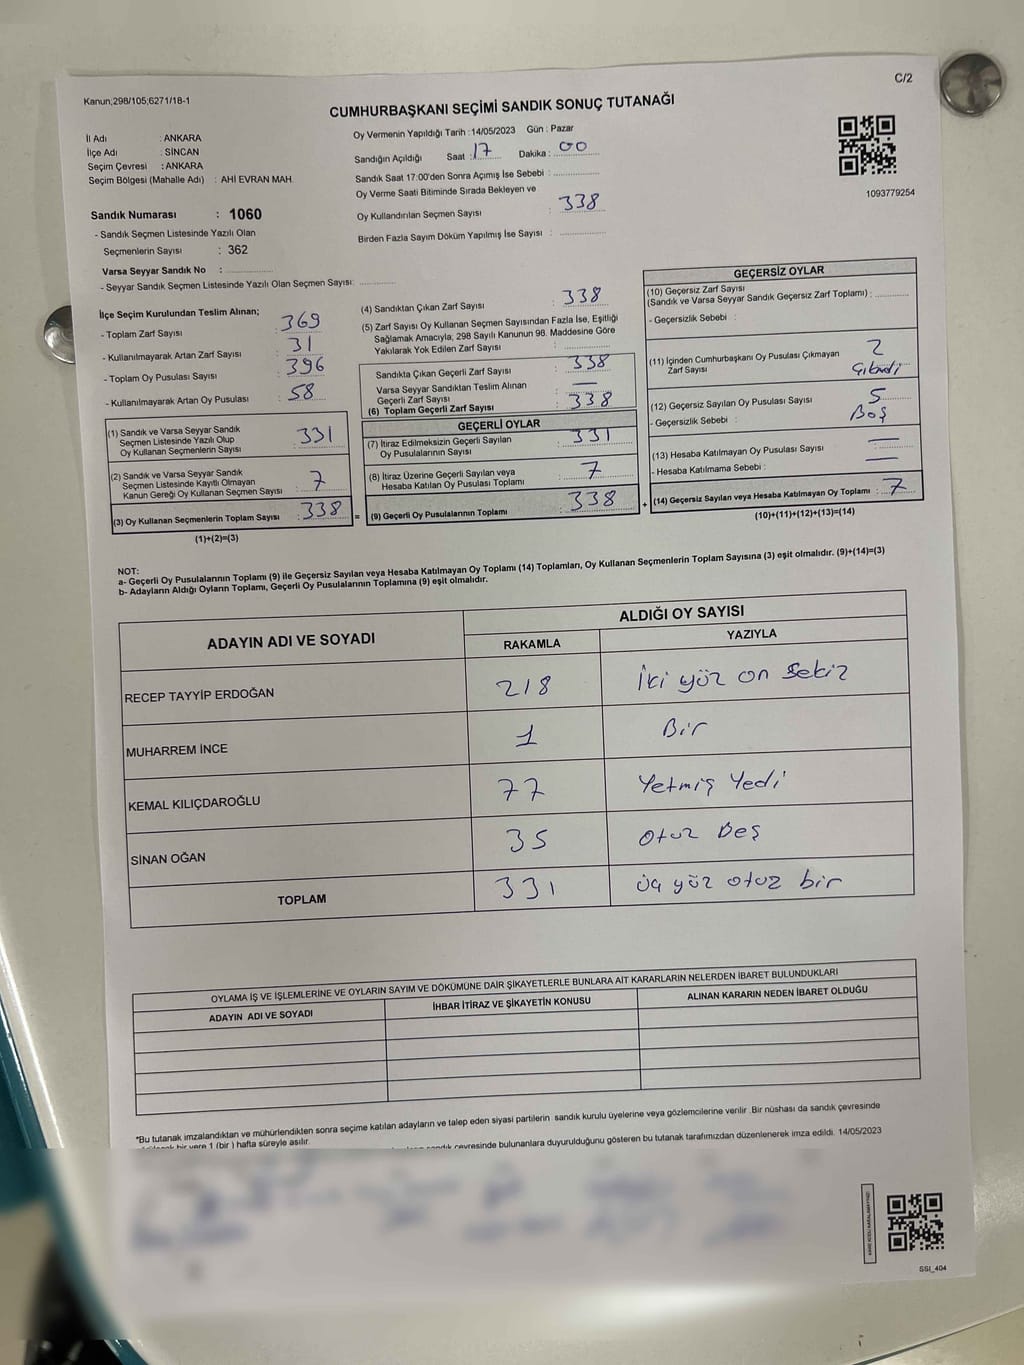 C/2
Kanun;298/105;6271/18-1
CUMHURBAŞKANI SEÇİMİ SANDIK SONUÇ TUTANAĞI
İl Adı : ANKARA
İlçe Adı : SİNCAN
Seçim Çevresi : ANKARA
Seçim Bölgesi (Mahalle Adı) : AHİ EVRAN MAH.
Sandık Numarası : 1060
- Sandık Seçmen Listesinde Yazılı Olan
Seçmenlerin Sayısı : 362
Varsa Seyyar Sandık No :
- Seyyar Sandık Seçmen Listesinde Yazılı Olan Seçmen Sayısı:
Oy Vermenin Yapıldığı Tarih :14/05/2023 Gün : Pazar
Sandığın Açıldığı Saat : 17 Dakika : 00
Sandık Saat 17:00'den Sonra Açımış İse Sebebi :
Oy Verme Saati Bitiminde Sırada Bekleyen ve
Oy Kullandırılan Seçmen Sayısı : 338
Birden Fazla Sayım Döküm Yapılmış İse Sayısı :
1093779254
İlçe Seçim Kurulundan Teslim Alınan;
- Toplam Zarf Sayısı : 369
- Kullanılmayarak Artan Zarf Sayısı : 31
- Toplam Oy Pusulası Sayısı : 396
- Kullanılmayarak Artan Oy Pusulası : 58
(1) Sandık ve Varsa Seyyar Sandık
Seçmen Listesinde Yazılı Olup
Oy Kullanan Seçmenlerin Sayısı : 331
(2) Sandık ve Varsa Seyyar Sandık
Seçmen Listesinde Kayıtlı Olmayan
Kanun Gereği Oy Kullanan Seçmen Sayısı : 7
(3) Oy Kullanan Seçmenlerin Toplam Sayısı : 338
(1)+(2)=(3)
(4) Sandıktan Çıkan Zarf Sayısı : 338
(5) Zarf Sayısı Oy Kullanan Seçmen Sayısından Fazla İse, Eşitliği
Sağlamak Amacıyla; 298 Sayılı Kanunun 98. Maddesine Göre
Yakılarak Yok Edilen Zarf Sayısı :
Sandıkta Çıkan Geçerli Zarf Sayısı : 338
Varsa Seyyar Sandıktan Teslim Alınan
Geçerli Zarf Sayısı : —
(6) Toplam Geçerli Zarf Sayısı : 338
GEÇERLİ OYLAR
(7) İtiraz Edilmeksizin Geçerli Sayılan
Oy Pusulalarının Sayısı : 331
(8) İtiraz Üzerine Geçerli Sayılan veya
Hesaba Katılan Oy Pusulası Toplamı : 7
= (9) Geçerli Oy Pusulalarının Toplamı : 338
GEÇERSİZ OYLAR
(10) Geçersiz Zarf Sayısı
(Sandık ve Varsa Seyyar Sandık Geçersiz Zarf Toplamı) :
- Geçersizlik Sebebi :
(11) İçinden Cumhurbaşkanı Oy Pusulası Çıkmayan 2
Zarf Sayısı
(12) Geçersiz Sayılan Oy Pusulası Sayısı : 5
- Geçersizlik Sebebi : Boş
(13) Hesaba Katılmayan Oy Pusulası Sayısı : —
- Hesaba Katılmama Sebebi : —
+ (14) Geçersiz Sayılan veya Hesaba Katılmayan Oy Toplamı : 7
(10)+(11)+(12)+(13)=(14)
NOT:
a- Geçerli Oy Pusulalarının Toplamı (9) ile Geçersiz Sayılan veya Hesaba Katılmayan Oy Toplamı (14) Toplamları, Oy Kullanan Seçmenlerin Toplam Sayısına (3) eşit olmalıdır. (9)+(14)=(3)
b- Adayların Aldığı Oyların Toplamı, Geçerli Oy Pusulalarının Toplamına (9) eşit olmalıdır.
ADAYIN ADI VE SOYADI
ALDIĞI OY SAYISI
RAKAMLA YAZIYLA
RECEP TAYYİP ERDOĞAN 218 İki yüz on sekiz
MUHARREM İNCE 1 Bir
KEMAL KILIÇDAROĞLU 77 Yetmiş Yedi
SİNAN OĞAN 35 otuz Beş
TOPLAM 331 üç yüz otuz bir
OYLAMA İŞ VE İŞLEMLERİNE VE OYLARIN SAYIM VE DÖKÜMÜNE DAİR ŞİKAYETLERLE BUNLARA AİT KARARLARIN NELERDEN İBARET BULUNDUKLARI
ADAYIN ADI VE SOYADI İHBAR İTİRAZ VE ŞİKAYETİN KONUSU ALINAN KARARIN NEDEN İBARET OLDUĞU
*Bu tutanak imzalandıktan ve mühürlendikten sonra seçime katılan adayların ve talep eden siyasi partilerin sandık kurulu üyelerine veya gözlemcilerine verilir. Bir nüshası da sandık çevresinde
bir yere 1 (bir ) hafta süreyle asılır.
sandık çevresinde bulunanlara duyurulduğunu gösteren bu tutanak tarafımızdan düzenlenerek imza edildi. 14/05/2023
SSI_404